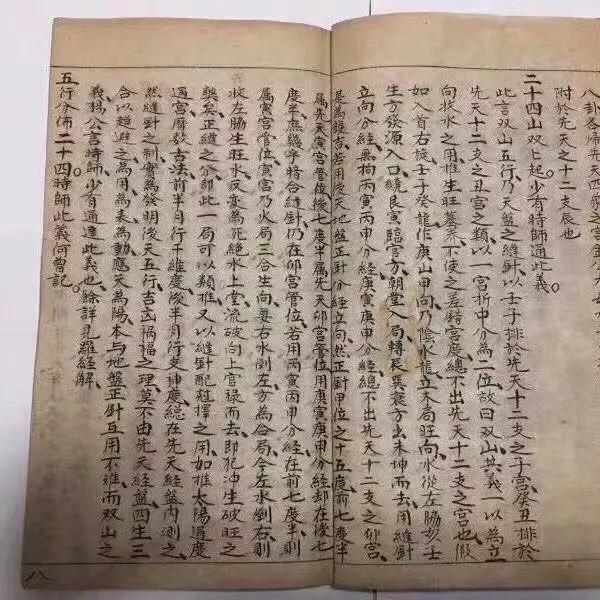 八卦各歸先天四居之宮
附於先天之十二支辰也
二十四山双双起少有時師通此義
此言双山五行乃天盤之縫針以壬子排於先天十二支之子宮癸丑排於
先天十二支之丑宮之類以一宮折中分為二位故曰双山其義一以為立
向收水之用推生旺墓养不使之差錯宮度總不出先天十二支之宮也假
如入首右旋壬子癸龍作庚山甲向乃陰水龍立木局旺向水從左脇亥壬
生方發源入口繞艮寅臨官方朝堂入局轉長巽衰方出未坤而去用縫針
立向分經無拘丙寅丙申分經庚寅庚申分經總不出先天十二支之卯宮
是為發吉若用後天地盤正針分經立向然正針甲位之十五度前七度半
属先天寅宮管位後七度半属先天卯宮管位用庚寅庚申分經却在後七
度半無幾乎暗合縫針仍在卯宮管位若用丙寅丙申分經在前七度半則
属寅宮管位寅宮乃火局三合生向要右水倒左方為合局今左水倒右則
收左脇生旺水反变為死絕水上堂流破向上官祿而去即犯冲生破旺之
獘矣正縫之分即此一局可以類推又以縫針配粧擇之用如推太陽過度
過宮曆数古法前半月行干維度後半月行支神度總在先天經盤內測之
然縫針之制實為發明後天五行吉凶禍福之理莫不由先天經盤四生三
合以趨避之為用為表為動應天為陽本与地盤正針互用不雅而双山之
義楊公言時師少有通達此義也餘詳見羅經解
五行分佈二十四時師此義何曾記
八